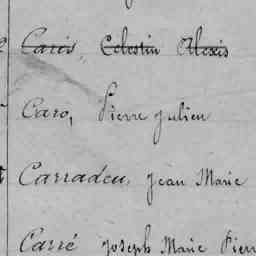 Caris, Celestin Alexis
Caro, Pierre Julien
Carradeu, Jean Marie
Carré Joseph Marie Pierr